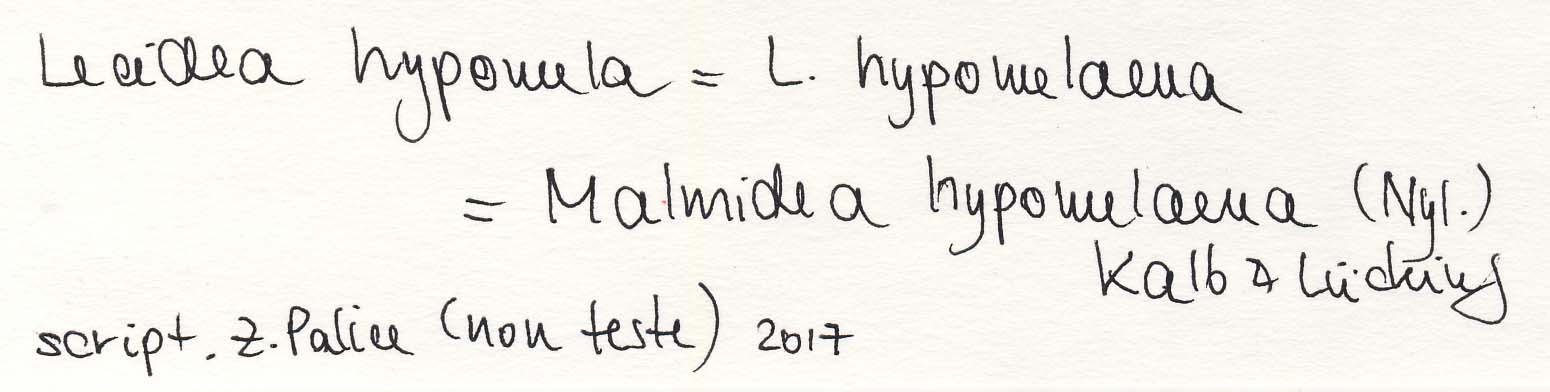 Lecidea hypomela = L. hypomelaena
= Malmidea hypomelaena (Nyl.)
Kalb & Lücking
script. Z. Palice (non teste) 2017